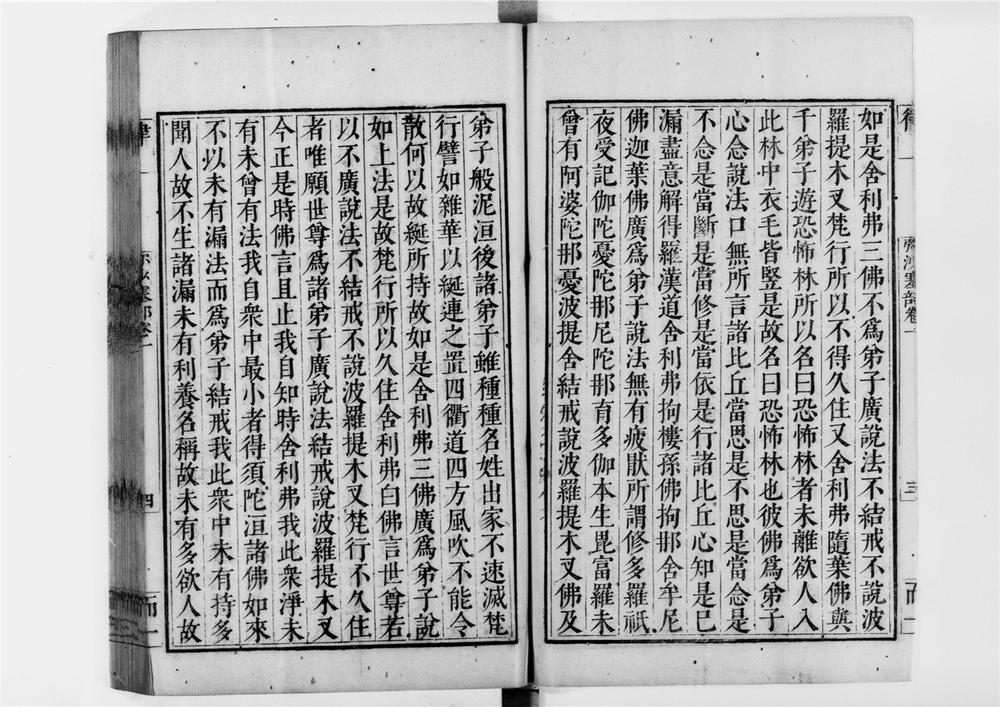 如是舍利弗三佛不爲弟子廣說法不結戒不說波
羅提木叉梵行所以不得久住又舍利弗隨葉佛與
千弟子遊恐怖林所以名曰恐怖林者未離欲人入
此林中衣毛皆豎是故名曰恐怖林也彼佛爲弟子
心念說法口無所言諸比丘當思是不思是當念是
不念是當斷是當修是當依是行諸比丘心知是已
漏盡意解得羅漢道舍利弗拘樓孫佛拘那舍牟尼
佛迦葉佛廣爲弟子說法無有疲猒所謂修多羅祇
夜受記伽陀憂陀那尼陀那育多伽本生毘富羅未
曾有阿婆陀那憂波提舍結戒說波羅提木叉佛及
弟子般泥洹後諸弟子雖種種名姓出家不速滅梵
行譬如雜華以綖連之置四衢道四方風吹不能令
散何以故綖所持故如是舍利弗三佛廣爲弟子說
如上法是故梵行所以久住舍利弗白佛言世尊若
以不廣說法不結戒不說波羅提木叉梵行不久住
者唯願世尊爲諸弟子廣說法結戒說波羅提木叉
今正是時佛言且止我自知時舍利弗我此衆淨未
有未曾有法我自衆中最小者得須陀洹諸佛如來
不以未有漏法而爲弟子結戒我此衆中未有持多
聞人故不生諸漏未有利養名稱故未有多欲人故
四